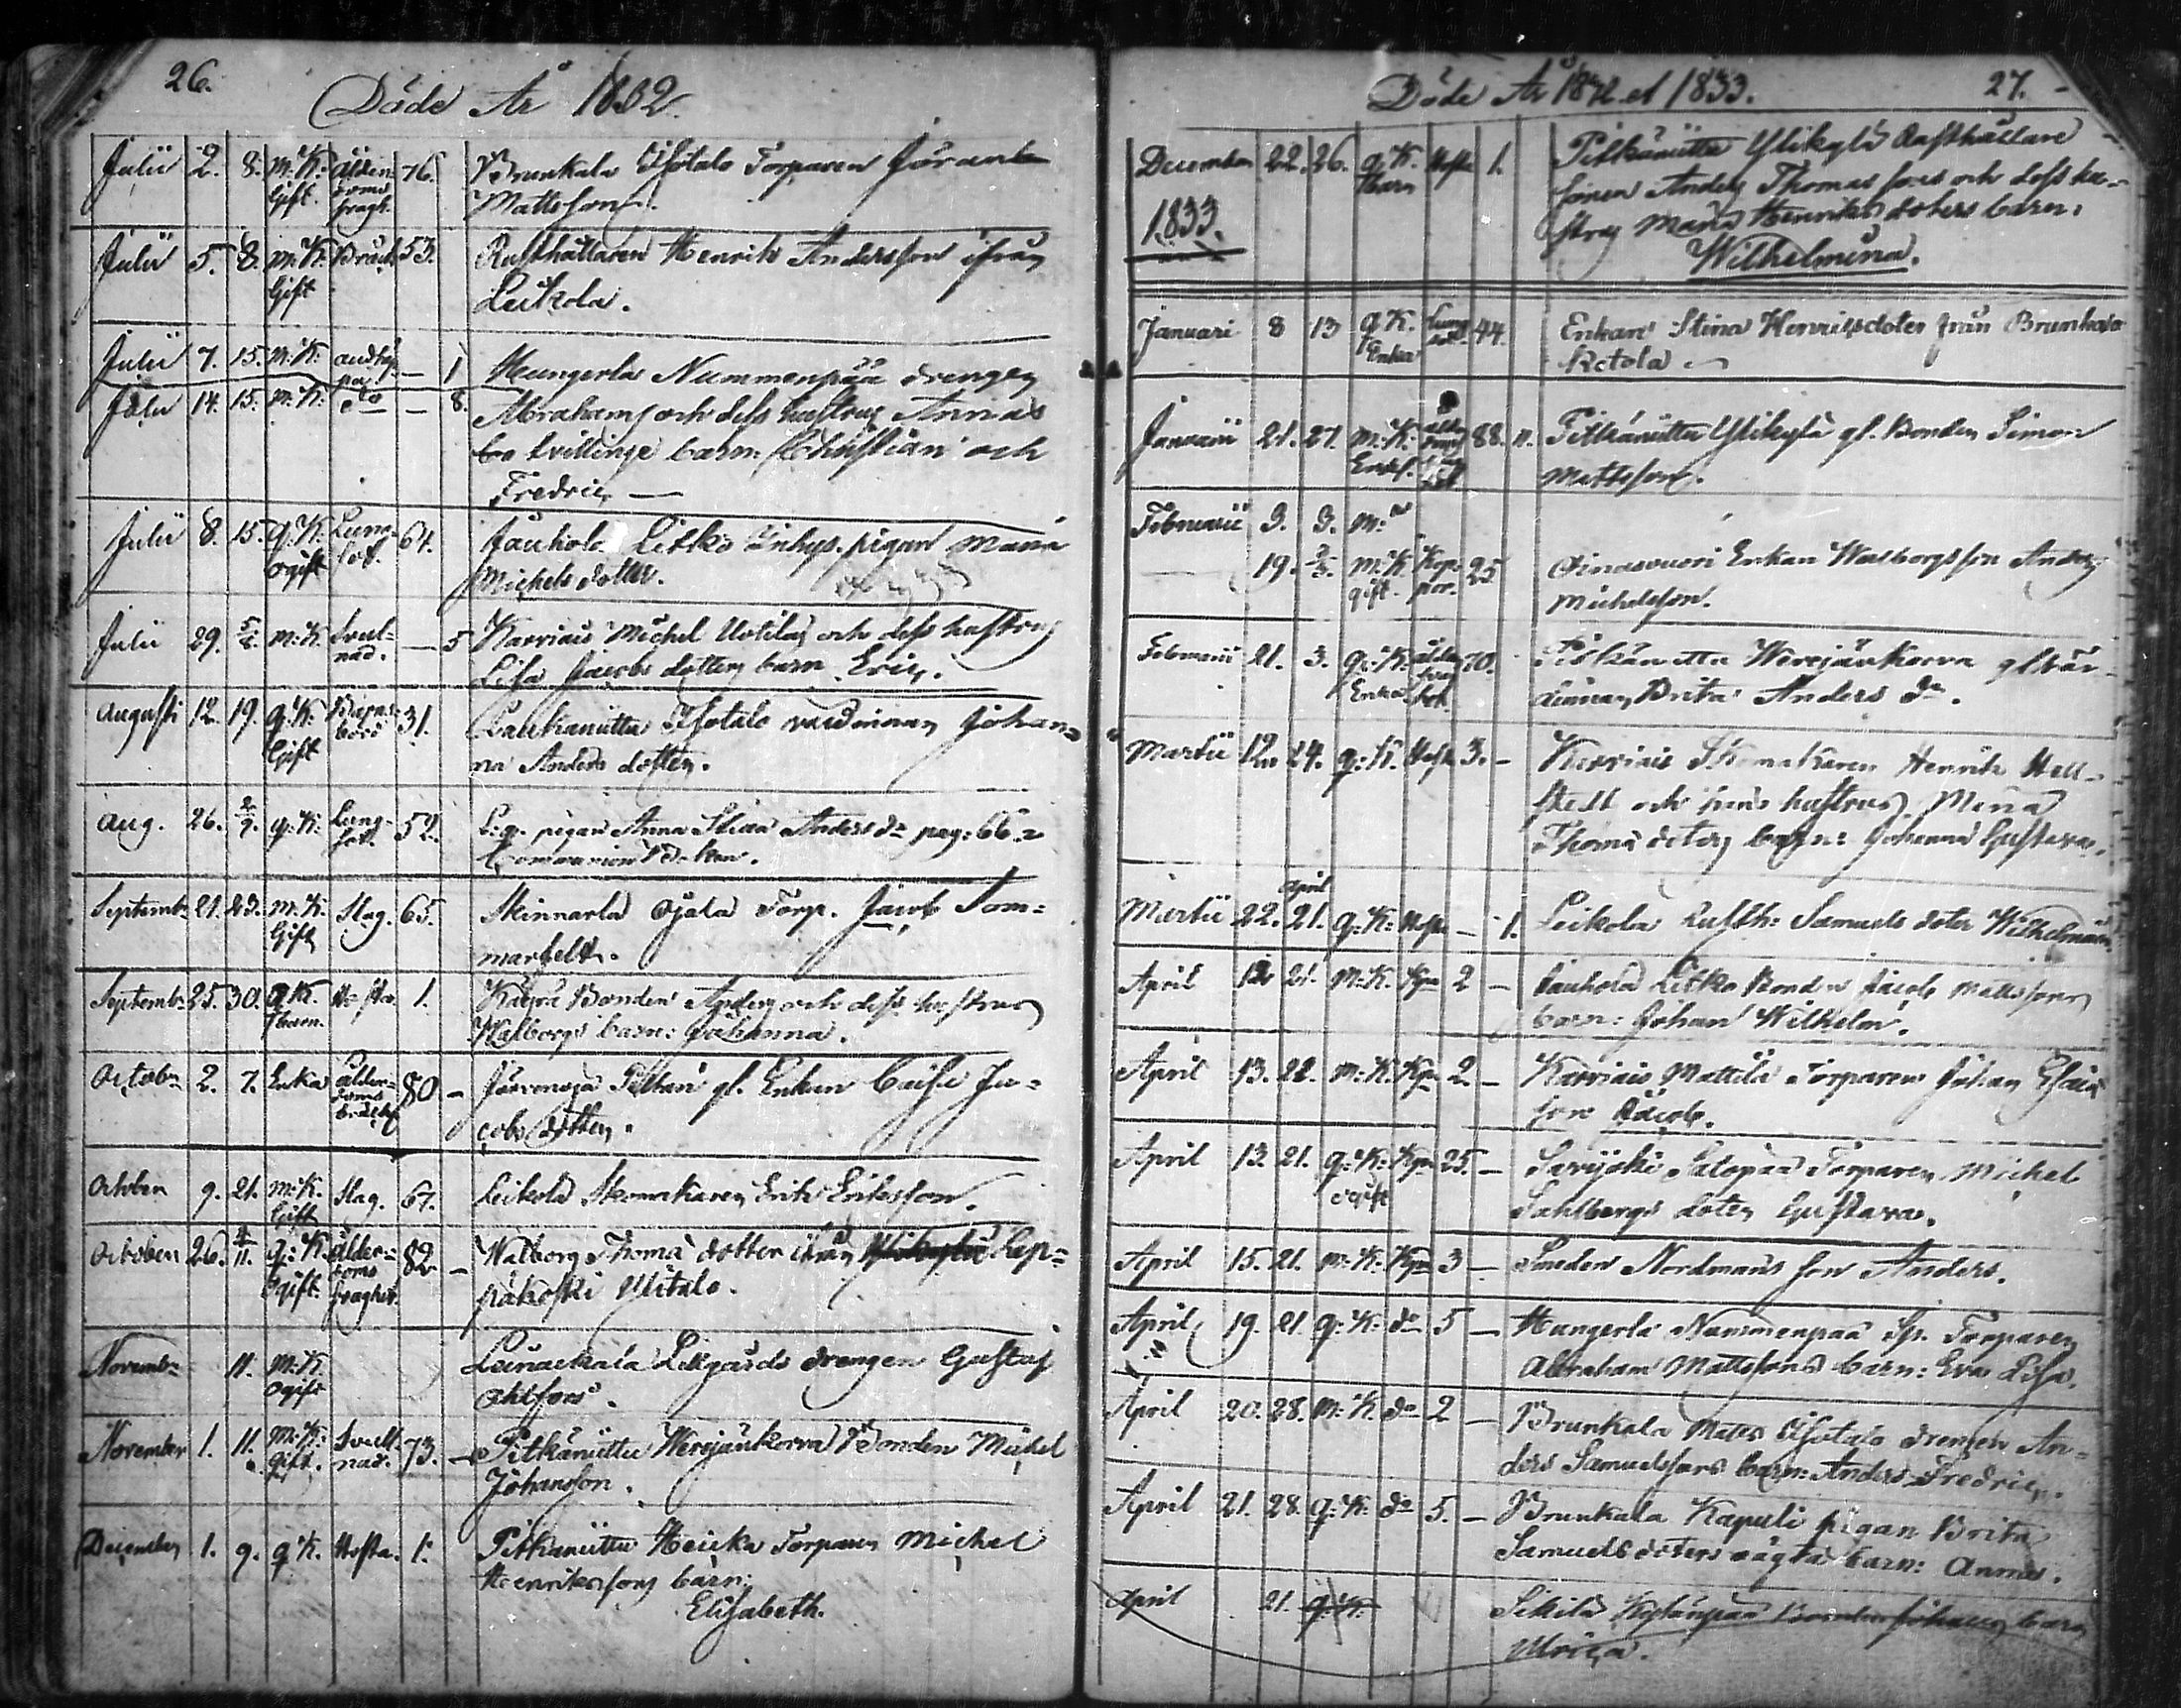 26.
Döde År 1832.
Julii 2. 8. M.K. Gift. Ålderdoms 76. Brunkala Isotalo Torparen
Mattsson.
Julii 5. 8. M.K. Gift 53. Rusthållaren Henrik Andersson ifrån
Leikola.
Julii 7. 15. M.K. — 1 Hungerla Nummenpää drengen
Julii 14. 15. M.K. do — 8. Abrahams och dess hustrus Annas
tvillinge barn: Christian och
Fredric —
Julii 8. 15. q.K. ogift Lungsot. 64. Jauhola Litko Inhys. pigan Maria
Michels dotter.
Julii 29. 5/8. M.K. Svullnad. — 5 Karviais Michel Uotilas och dess hustrus
Lisa Jacobs dotters barn Eric.
Augusti 12. 19. q.K. Gift Barnsbörd 31. Isotalo värdinnan Johan-
na Anders dotter.
Aug. 26. 2/9. q.K. Lungsot. 52. pigan Anna Stina Anders dr pag: 66
Communion Boken.
Septembr 21. 23. M.K. Gift Slag. 65. Skinnarla Ojala Torp. Jacob Som=
marfelt.
Septembr 25. 30. q.K. barn. Hosta. 1. Bonden Anders och dess hustrus
Walborgs barn: Johanna.
October 2. 7. Enka Ålderdoms 80. — gl. Enkan Caisa Ja=
cobs dotter.
October 9. 21. M.K. Gift Slag. 67. Leikola Skomakaren Erik Eriksson.
October 26. 4/11. q.K. Ogift. Ålderdoms 82 — Walborg Thoma dotter ifrån Lep=
päkoski Ylitalo.
Novembr 11. M.K. Ogift Lillgårds drengen Gustaf
Ahlfors.
November 1. 11. M.K. gift. Svullnad. 73. — Pitkäniittu Werejänkorva Bonden Michel
Johansson.
December 1. 9. q.K. Hosta. 1. Pitkäniittu Heicka Torparen Michel
Henrikssons barn:
Elisabeth.
Döde År 1832 et 1833. 27.
December 22. 26. q.K. barn Hosta 1. Pitkäniittu Ylikylä Rusthållare
sonen Anders Thomas sons och dess hu-
strus Maria Henriks doters barn:
Wilhelmina.
1833.
Januari 8 13 q.K. Enka Lungsot. 44. Enkan Stina Henriksdoter från Brunkala
Ketola
Januarii 21. 27. M.K. Enkl. 88. Pitkäniittu Ylikylä gl. Bonden Simon
Mattsson.
Februarii 3. 3. M.
19. 3/3. M.K. gift. Koppor. 25 Oinasvuori Enkan Walborgs son Anders
Michelsson.
Februarii 21. 3. q.K. Enka 70. Pitkäniittu Werejänkorva gl. vär-
dinnan Brita Anders dr.
Martii 12. 24. q.K. Hosta 3. — Karviais Skomakaren Henrik Hell-
stedt och hans hustrus Maria
Thoma doters barn: Johanna Gustava.
Martii 22. April 21. q.K. Hosta — 1. Leikola Rusth: Samuels doter Wilhelmina.
April 12 21. M.K. Kpr 2 — Jauhola Litko Bonden Jacob Mattssons
barn: Johan Wilhelm.
April 13. 22. M.K. Kpr 2. — Karviais Mattila Torparen Johan
son Jacob.
April 13. 21. q.K. ogift Kpr 25. — Savijoki Satopää Torparen Michel
Sahlbergs doter Gustava.
April 15. 21. M.K. Kpr 3 — Nordmans son Anders.
April 19. 21 q.K. do 5 — Hungerla Nummenpää Sp. Torparen
Abraham Mattssons barn: Eva Lisa.
April 20. 28. M.K. do 2 — Brunkala Isotalo drengen An-
ders Samuelssons barn: Anders Fredric.
April 21. 28. q.K. do 5. — Brunkala Kapuli pigan Brita
Samuels doters oägta barn: Anna.
April 21. q.K. Sikilä barn
Ulrica.